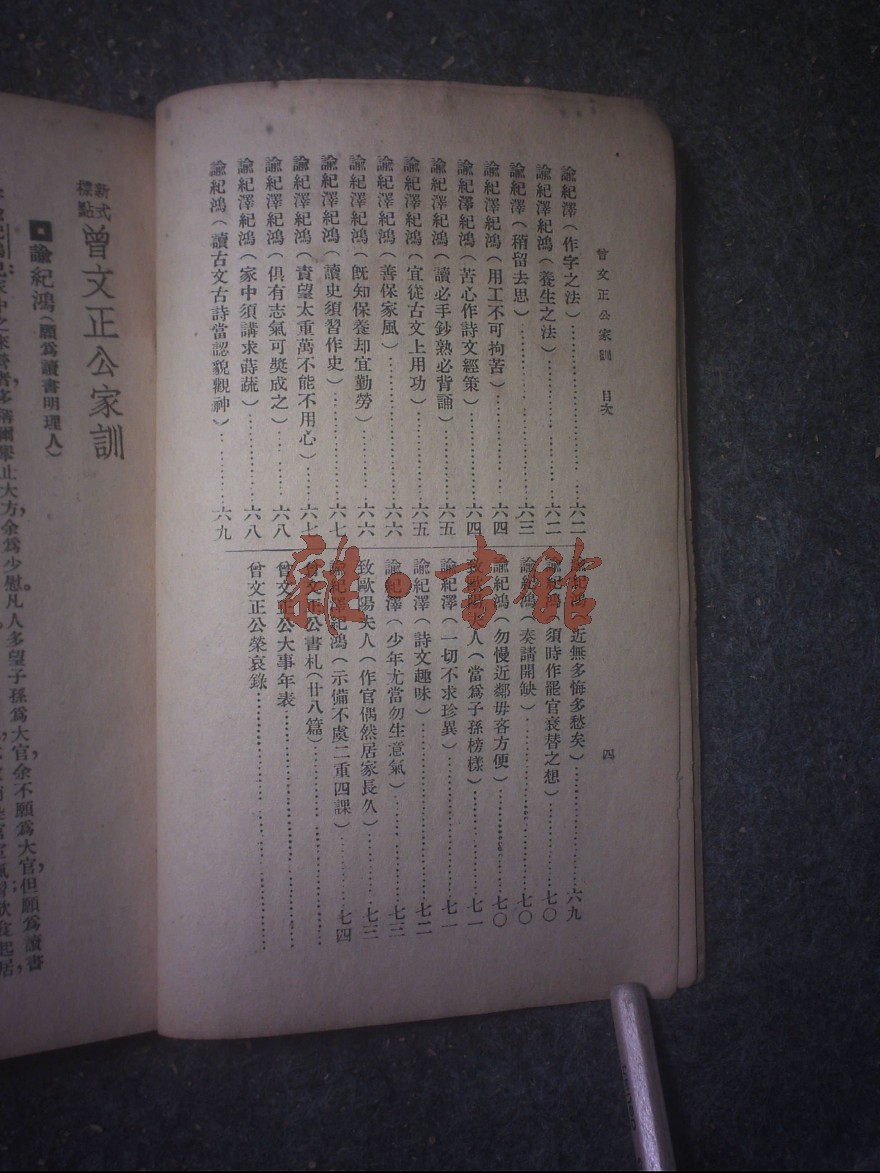 曾文正公家訓　目次
四
諭紀澤（作字之法）……六二
諭紀澤紀鴻（養生之法）……六二
諭紀澤（稍留去思）……六三
諭紀澤紀鴻（用工不可拘苦）……六四
諭紀澤紀鴻（苦心作詩文經策）……六四
諭紀澤紀鴻（讀必手鈔熟必背誦）……六五
諭紀澤紀鴻（宜從古文上用功）……六五
諭紀澤紀鴻（善保家風）……六六
諭紀澤紀鴻（旣知保養却宜勤勞）……六六
諭紀澤紀鴻（讀史須習作史）……六七
諭紀澤紀鴻（責望太重萬不能不用心）……六七
諭紀澤紀鴻（俱有志氣可奬成之）……六八
諭紀澤紀鴻（家中須講求蒔蔬）……六八
諭紀鴻（讀古文古詩當認貌觀神）……六九
諭紀鴻（近無多悔多愁矣）……六九
諭紀鴻（須時作罷官衰替之想）……七〇
諭紀鴻（奏請開缺）……七〇
諭紀鴻（勿慢近鄰毋吝方便）……七〇
致歐陽夫人（當爲子孫榜樣）……七一
諭紀澤（一切不求珍異）……七一
諭紀澤（詩文趣味）……七二
諭紀澤（少年尤當勿生意氣）……七三
致歐陽夫人（作官偶然居家長久）……七三
諭紀澤紀鴻（示備不虞二重四課）……七四
曾文正公書札（廿八篇）……
曾文正公大事年表……
曾文正公榮哀錄……
雜·書館
新式標點曾文正公家訓
諭紀鴻（願爲讀書明理人）
家中之來營者多稱爾舉止大方，余爲少慰凡人多望子孫爲大官余不願爲大官，但願爲讀書
氣習飲食起居，